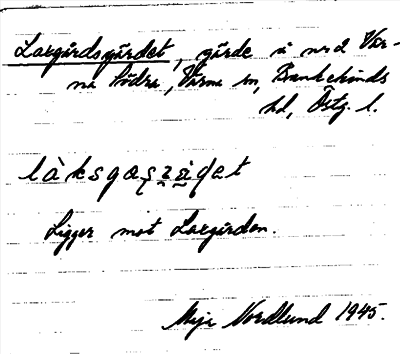 Laxgårdsgärdet, gärde å nr 2 Vår-
na Södra, Vårna sn, Bankekinds
hd, Östg. l.
làksgasʐàḍet
Ligger mot Laxgården.
Maja Nordlund 1945.